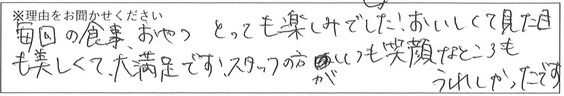 ※理由をお聞かせください
毎回の食事、おやつ とっても楽しみでした！おいしくて見た目
も美しくて、大満足です！スタッフの方がいつも笑顔なところも
うれしかったです